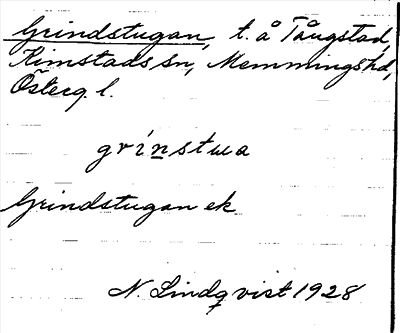 Grindstugan, t. å Tångstad,
Kimstads sn, Memmings hd,
Österg. l.
grinstua
Grindstugan ek.
N. Lindqvist 1928